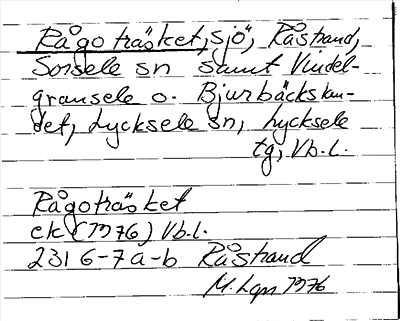 Rågoträsket, sjö, Råstrand,
Sorsele sn samt Vindel-
gransele o. Bjurbäckslan-
det, Lycksele sn, Lycksele
tg, Vb.l.
Rågoträsket
ek (1976) Vb.l.
23I 6-7 a-b Råstrand
M. Lgn 1976